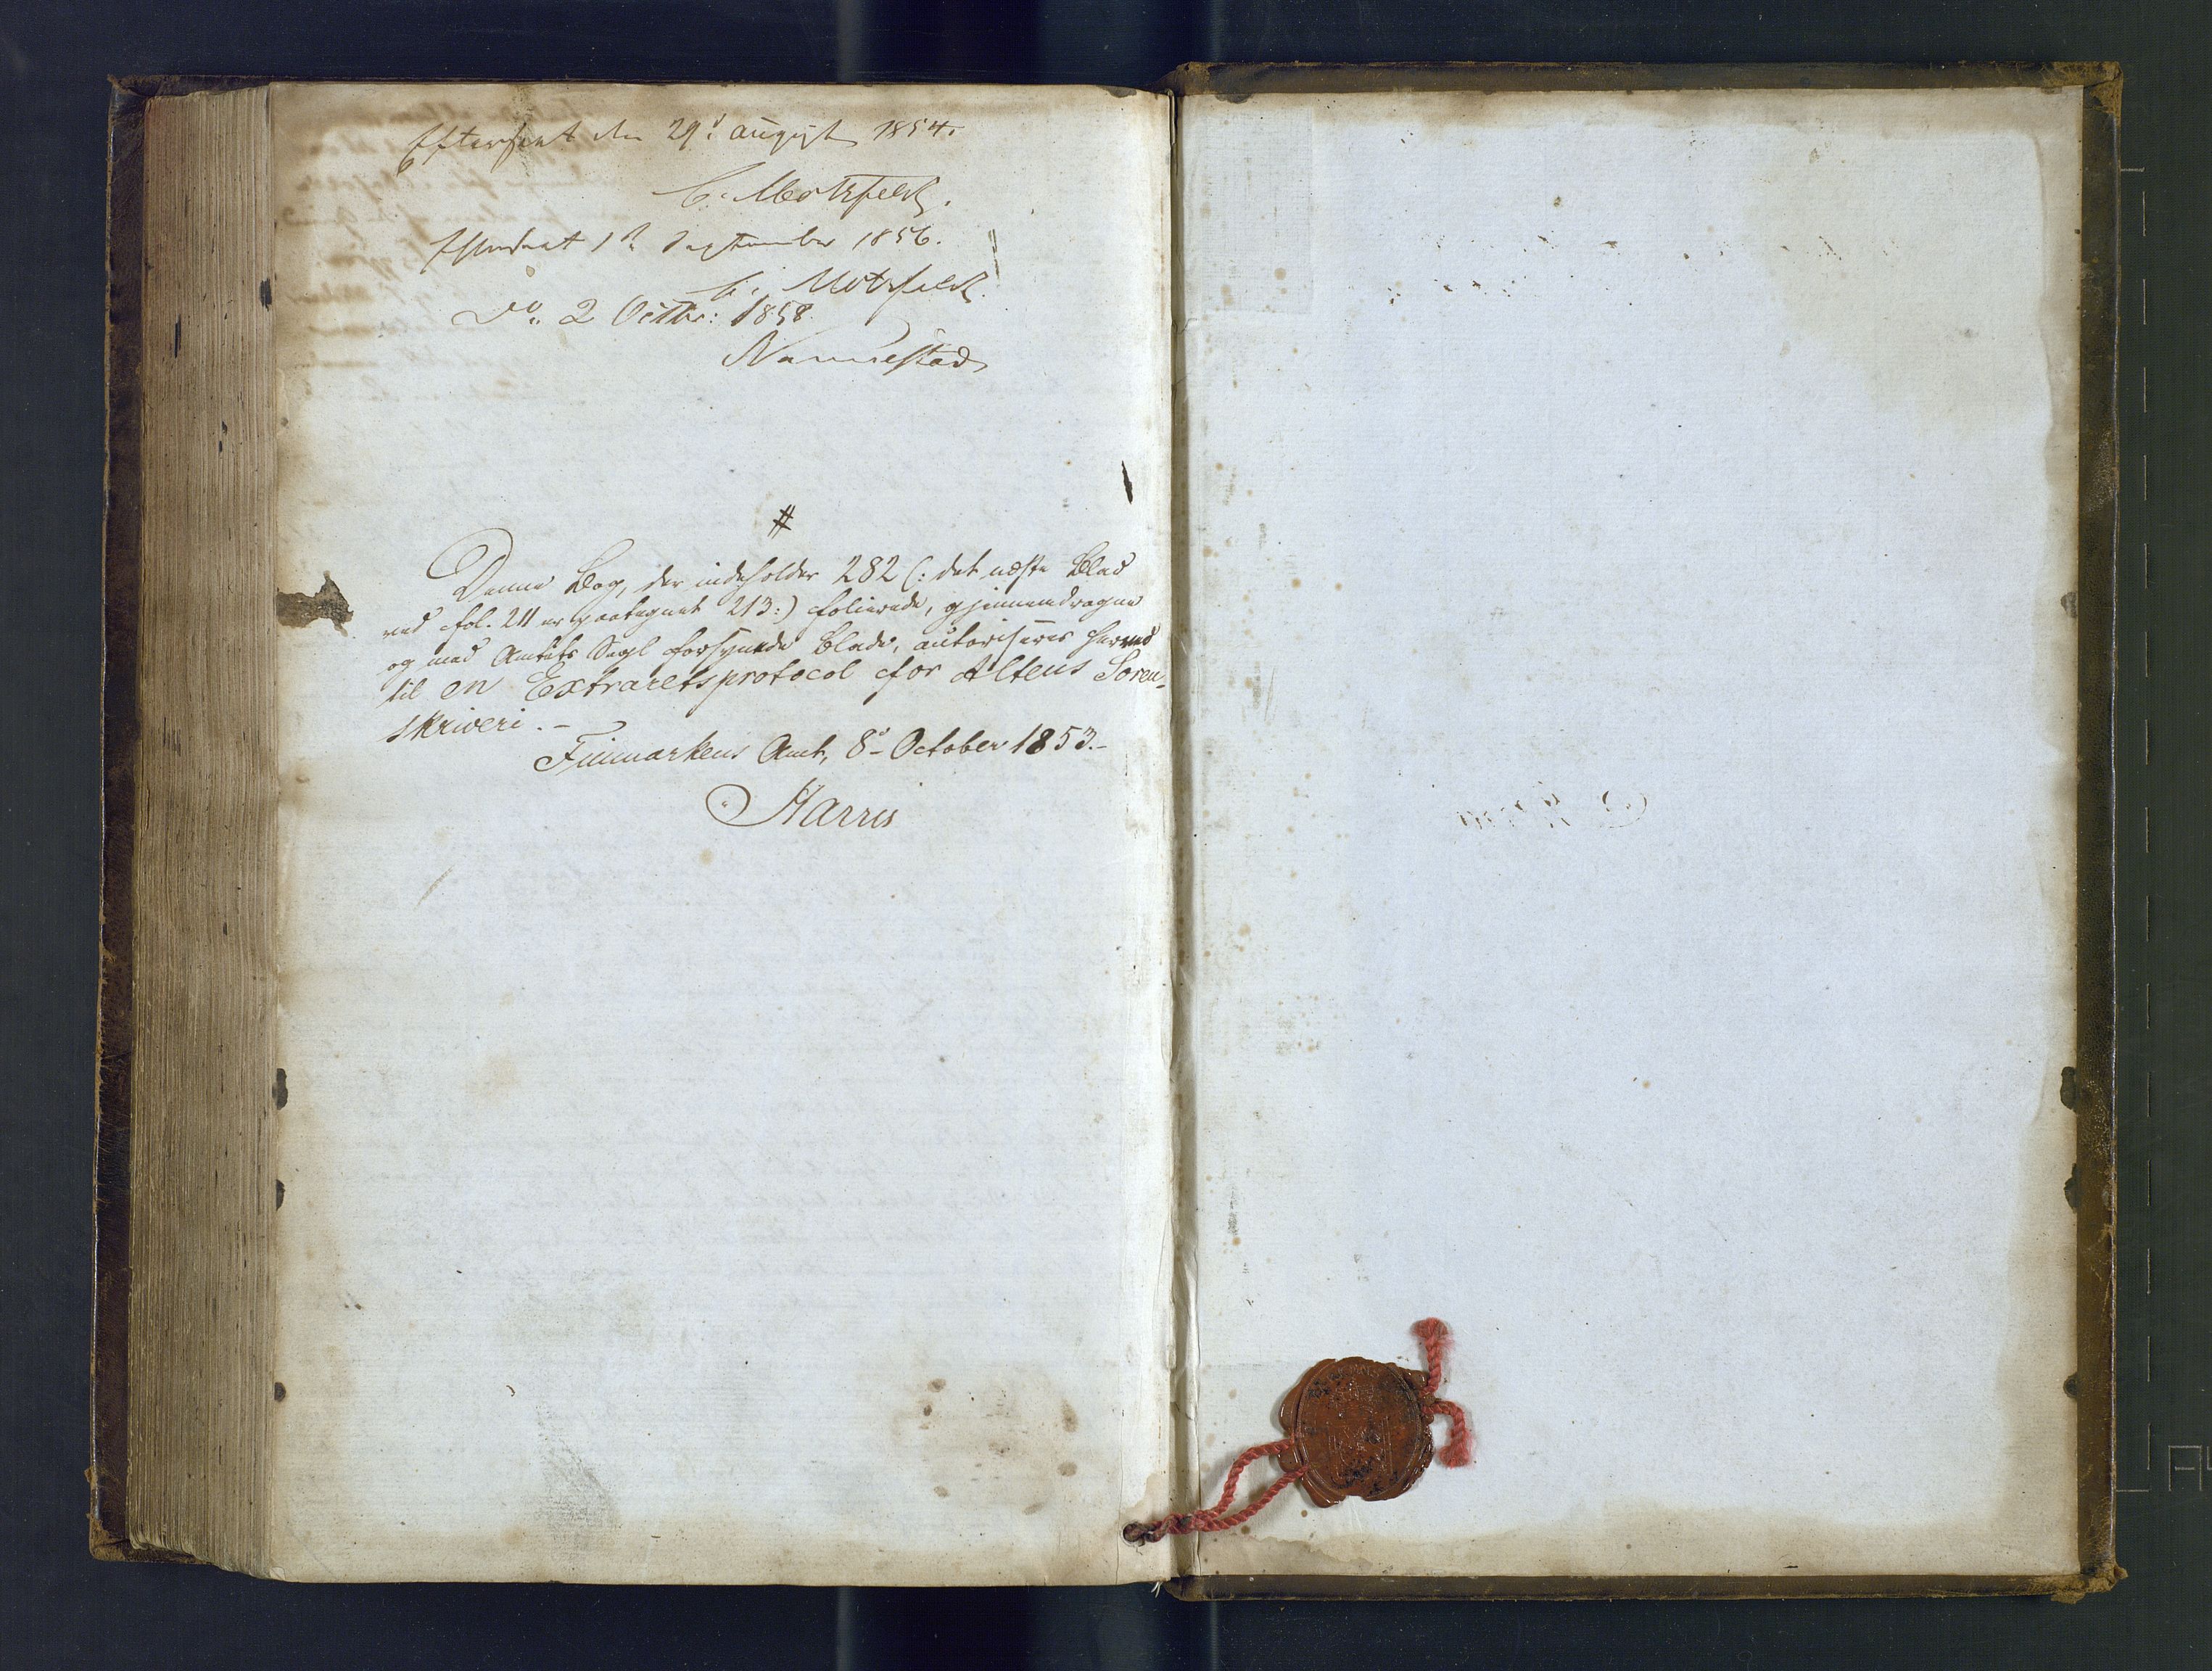 Efterseet den 29d August 1854.
C. Motzfeldt.
Efterseet 1ste September 1856.
C. Motzfeldt.
Do. 2 Octbr: 1858
Nannestad
#
Denne Bog, der indeholder 282 (: det næste Blad
ved fol. 211 er paategnet 213:) folierede, gjennemdragne
og med Amtets Segl forsynede Blade, autoriseres herved
til en Extraretsprotocol for Altens Soren-
skriveri. –
Finmarkens Amt, 8de October 1853. –
Harris